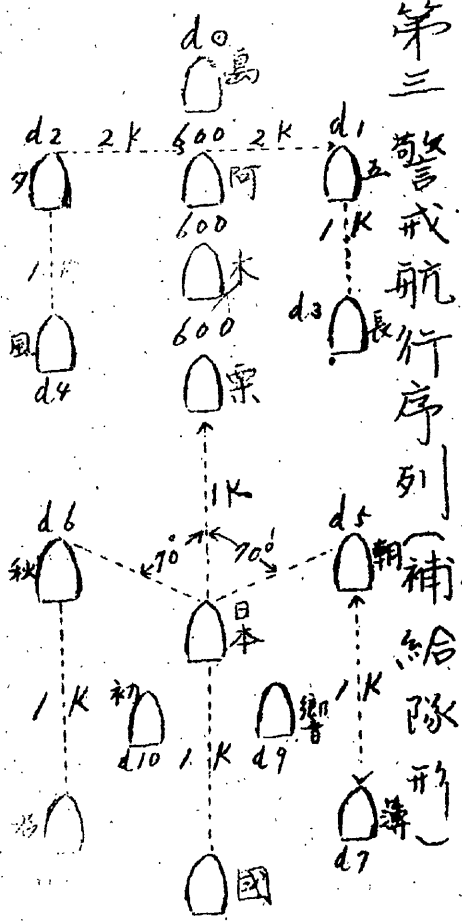 第三警戒航行序列(補給隊形)
d0
島
d2 2K 600 2K d1
夕
阿
五
600
1K
木
d3
長
600
風
d4
栗
1K
d6
d5
秋
70° 70°
朝
日本
1K
初
響
1K
d10
1K
d9
薄
d7
國